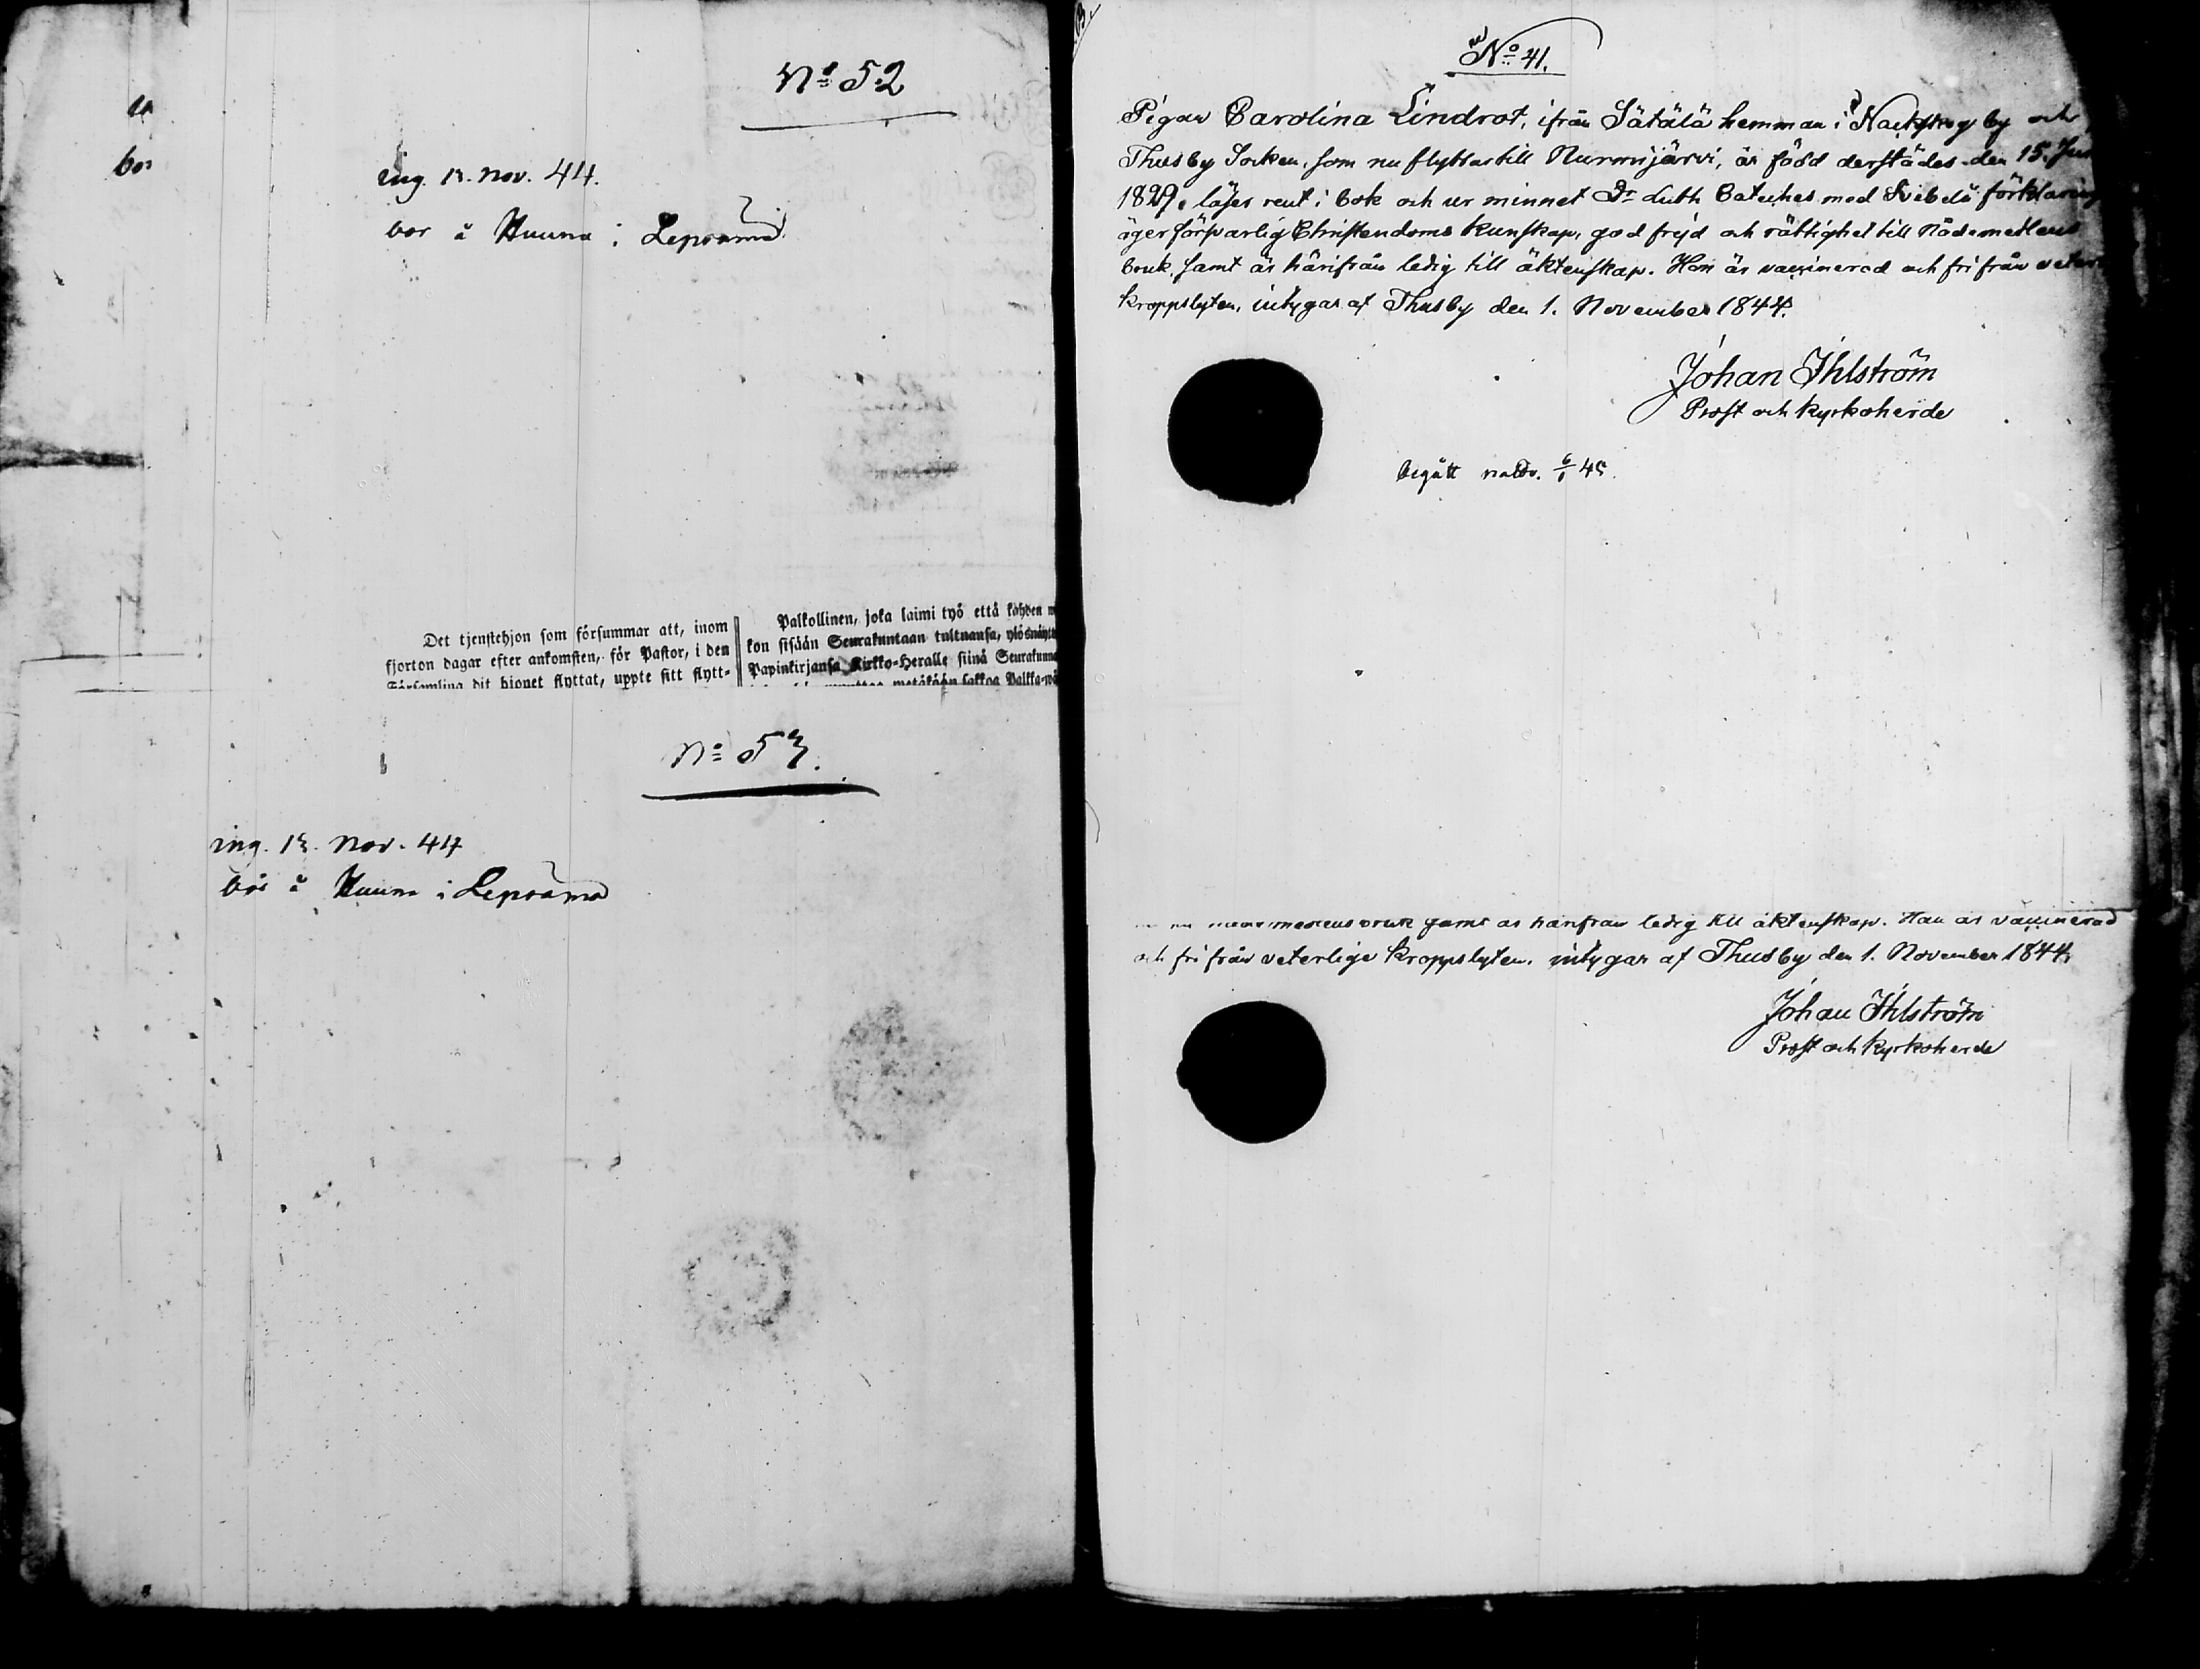 No 52
ing. 13. Nov. 44.
bor
bor å Huuna i Lepsämä.
Det tjenstehjon som försummar att, inom
fjorton dagar efter ankomsten, för Pastor, i den
Församling dit hjonet flyttat, uppte sitt flytt-
Palkollinen, joka laimi työ että kahden
kon sisään Seurakuntaan tultuansa, ylösnäyttä
Papinkirjansa Kirkko-Heralle siinä Seurakunna
metäkään sakkoa Palkka-wä
No 53.
ing. 13. Nov. 44
bor å Huuna i Lepsämä
No 41.
Pigan Carolina Lindrot, ifrån Sätälä hemman i Nackskog by och
Thusby Socken, som nu flyttar till Nurmijärvi, är född derstädes den 15. Jun
1829, läser rent i bok och ur minnet Dr Luth Cateches med Svebelii förklaring
äger försvarlig Christendoms kunskap, god frejd och rättighet till Nådemedlens
bruk, samt är härifrån ledig till äktenskap. Hon är vaccinerad och fri från veter
kroppslyten, intygar af Thusby den 1. November 1844.
Johan Ihlström
Prost och Kyrkoherde
begått nattv. 6/1 45.
medlens bruk samt är härifrån ledig till äktenskap. Han är vaccinerad
och fri från veterlige kroppslyten, intygar af Thusby den 1. November 1844.
Johan Ihlström
Prost och Kyrkoherde